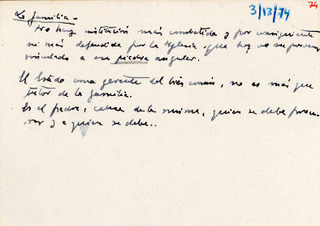 3/13/74
74
La familia.-
No hay institución más combatida y por consiguiente
ni más defendida por la Iglesia, que hoy no se
vinculado a esa piedra angular.
El Estado como gerente del bien común, no es más que
tutor de la familia.
Es el padre, cabeza de la misma, quien se debe
y a quien se debe..